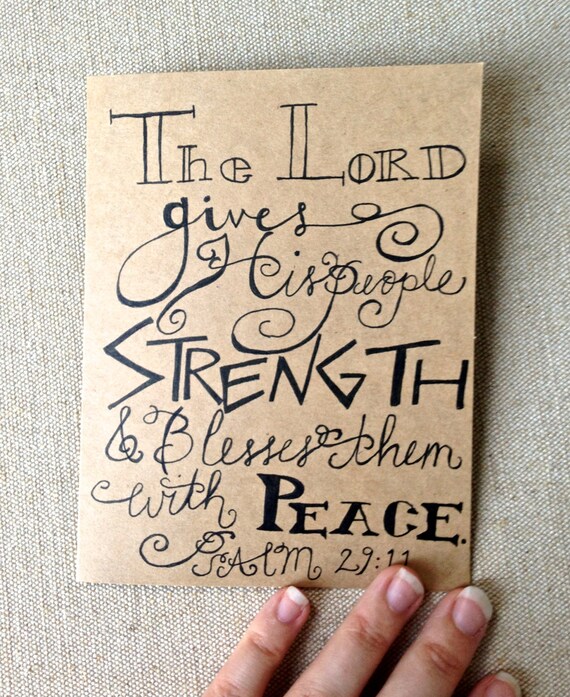 The Lord
gives
His people
STRENGTH
& Blesses them
with PEACE.
PSALM 29:11